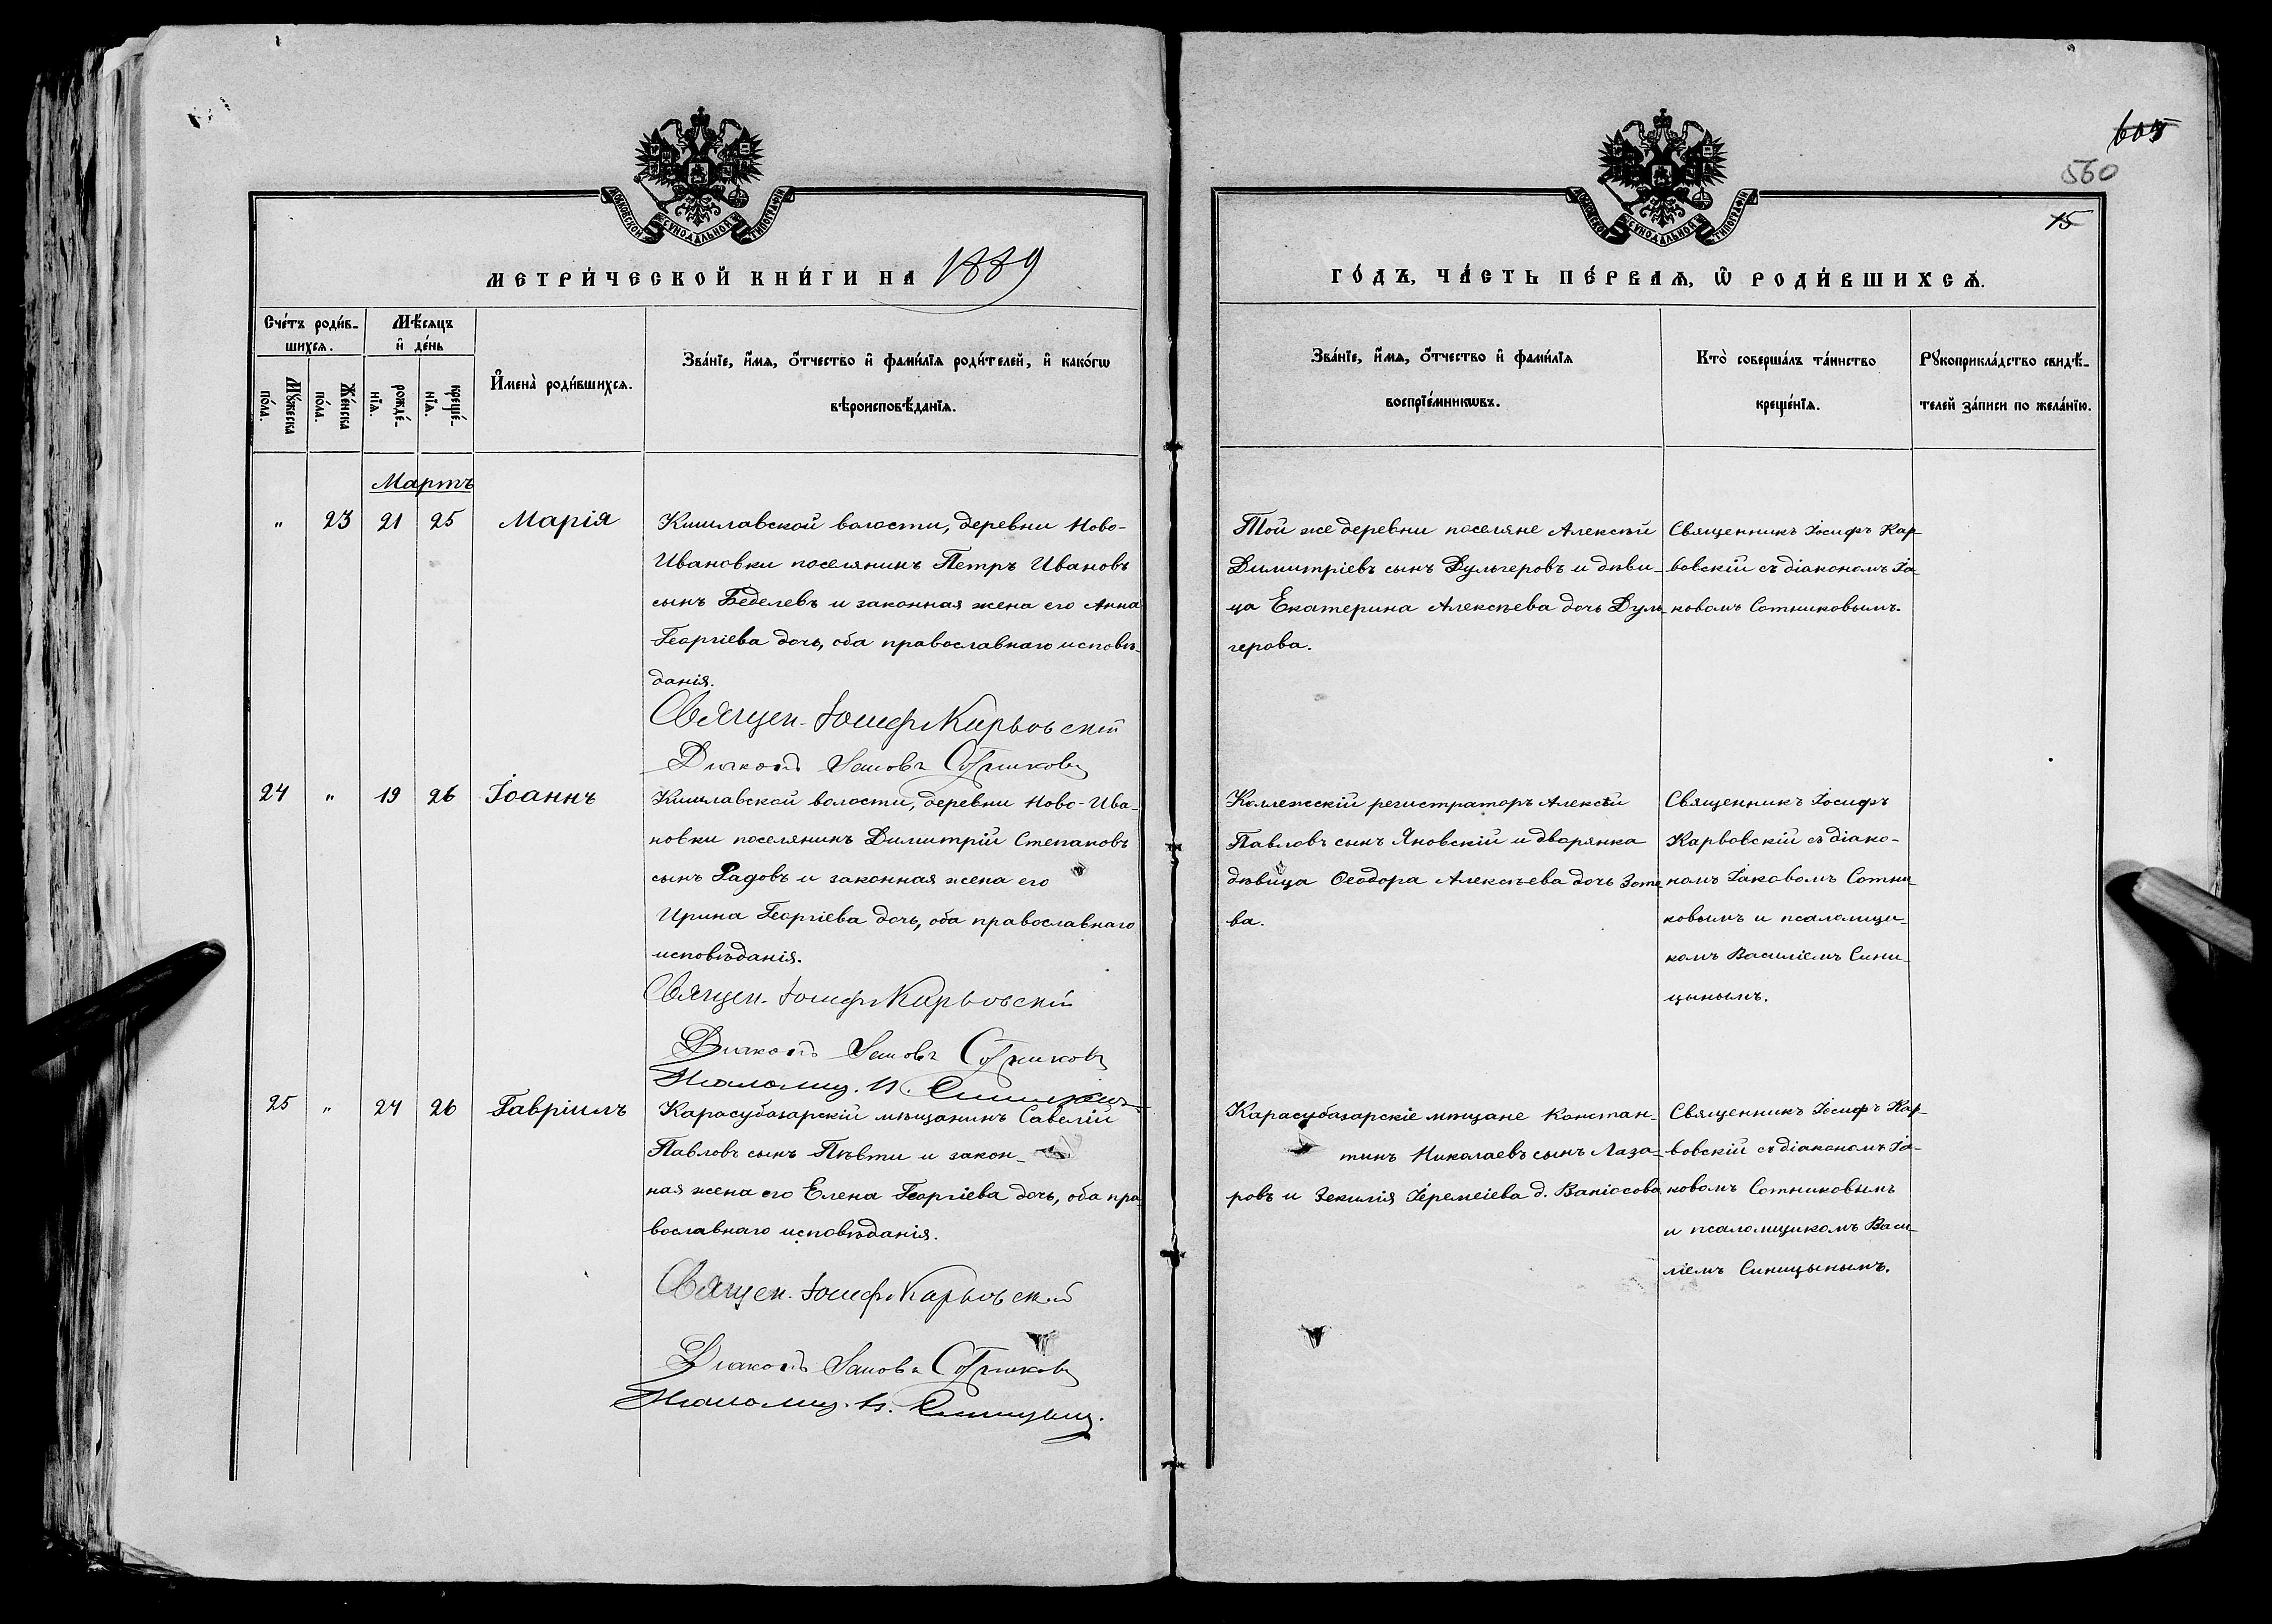 605
560
15
МОСКОВСКОЙ СУНОДАЛЬНОЙ ТИПОГРАФІИ
МОСКОВСКОЙ СУНОДАЛЬНОЙ ТИПОГРАФІИ
МЕТРИ́ЧЕСКОЙ КНИ́ГИ НА 1889
ГО́ДЪ, ЧА́СТЬ ПЕ́РВАѦ, Ѡ҆ РОДИ́ВШИХСѦ.
Сче́тъ роди́в-
шихсѧ.
Мѣ́сѧцъ
и҆ де́нь
Мꙋ́жеска
по́ла.
Же́нска
по́ла.
рожде́-
нїѧ.
креще́-
нїѧ.
И҆мена̀ роди́вшихсѧ.
Зва́нїе, и҆́мѧ, ѻ҆́тчество и҆ фами́лїѧ роди́телей, и҆ како́гѡ
вѣроисповѣ́данїѧ.
Зва́нїе, и҆́мѧ, ѻ҆́тчество и҆ фами́лїѧ
воспрїе́мникѡвъ.
Кто̀ соверша́лъ та́инство
креще́нїѧ.
Рꙋкоприкла́дство свидѣ́-
телей за́писи по жела́нїю.
Мартъ
" 23 21 25 Марія
Кишлавской волости, деревни Ново-
Ивановки поселянинъ Петръ Ивановъ
сынъ Беделевъ и законная жена его Анна
Георгіева дочь, оба православнаго исповѣ-
данія.
Священ. Іосифъ Карвовскій
Діаконъ Іаковъ Сотниковъ
Той же деревни поселяне Алексѣй
Димитріевъ сынъ Дульгеровъ и дѣви-
ца Екатерина Алексѣева дочь Дуль-
герова.
Священникъ Іосифъ Кар-
вовскій съ діакономъ Іа-
ковомъ Сотниковымъ.
24 " 19 26 Іоаннъ
Кишлавской волости, деревни Ново-Ива-
новки поселянинъ Димитрій Степановъ
сынъ Радовъ и законная жена его
Ирина Георгіева дочь, оба православнаго
исповѣданія.
Священ. Іосифъ Карвовскій
Діаконъ Іаковъ Сотниковъ
Псаломщ. В. Синицынъ
Коллежскій регистраторъ Алексѣй
Павловъ сынъ Яновскій и дворянка
дѣвица Ѳеодора Алексѣева дочь Зоте
ва.
Священникъ Іосифъ
Карвовскій съ діако-
номъ Іаковомъ Сотни-
ковымъ и псаломщи-
комъ Василіемъ Сини-
цынымъ.
25 " 24 26 Гавріилъ
Карасубазарскій мѣщанинъ Савелій
Павловъ сынъ Пѣвти и закон-
ная жена его Елена Георгіева дочь, оба пра-
вославнаго исповѣданія.
Священ. Іосифъ Карвовскій
Діаконъ Іаковъ Сотниковъ
Псаломщ. В. Синицынъ.
Карасубазарскіе мѣщане Констан-
тинъ Николаевъ сынъ Лаза-
ровъ и Зекилія Іеремеіева д. Вапіосова
Священникъ Іосифъ Кар-
вовскій съ діакономъ Іа-
ковомъ Сотниковымъ
и псаломщикомъ Васи-
ліемъ Синицынымъ.